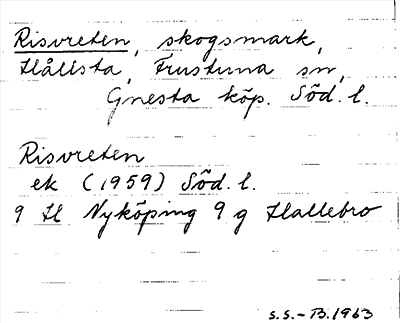 Risvreten, skogsmark,
Hållsta, Frustuna sn,
Gnesta köp. Söd. l.
Risvreten
ek (1959) Söd. l.
9 H Nyköping 9 g Hallebro
S.S.-B.1963